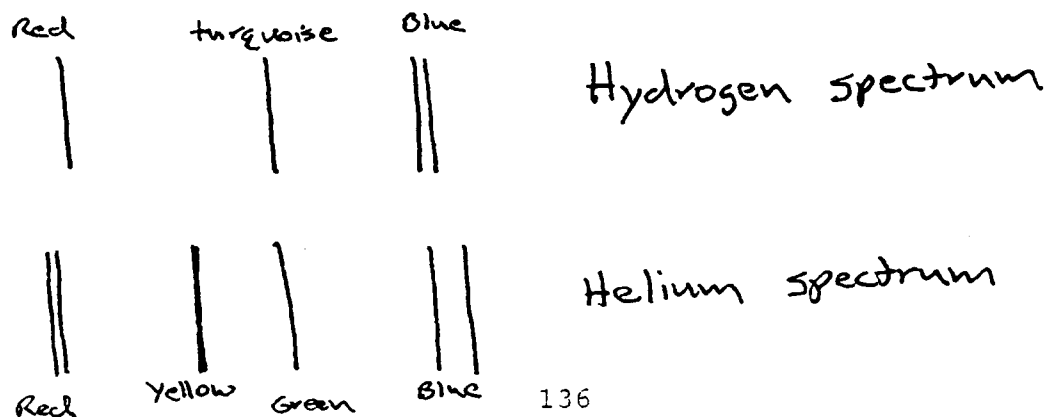 Red turquoise Blue
Hydrogen spectrum
Helium spectrum
Red Yellow Green Blue
136